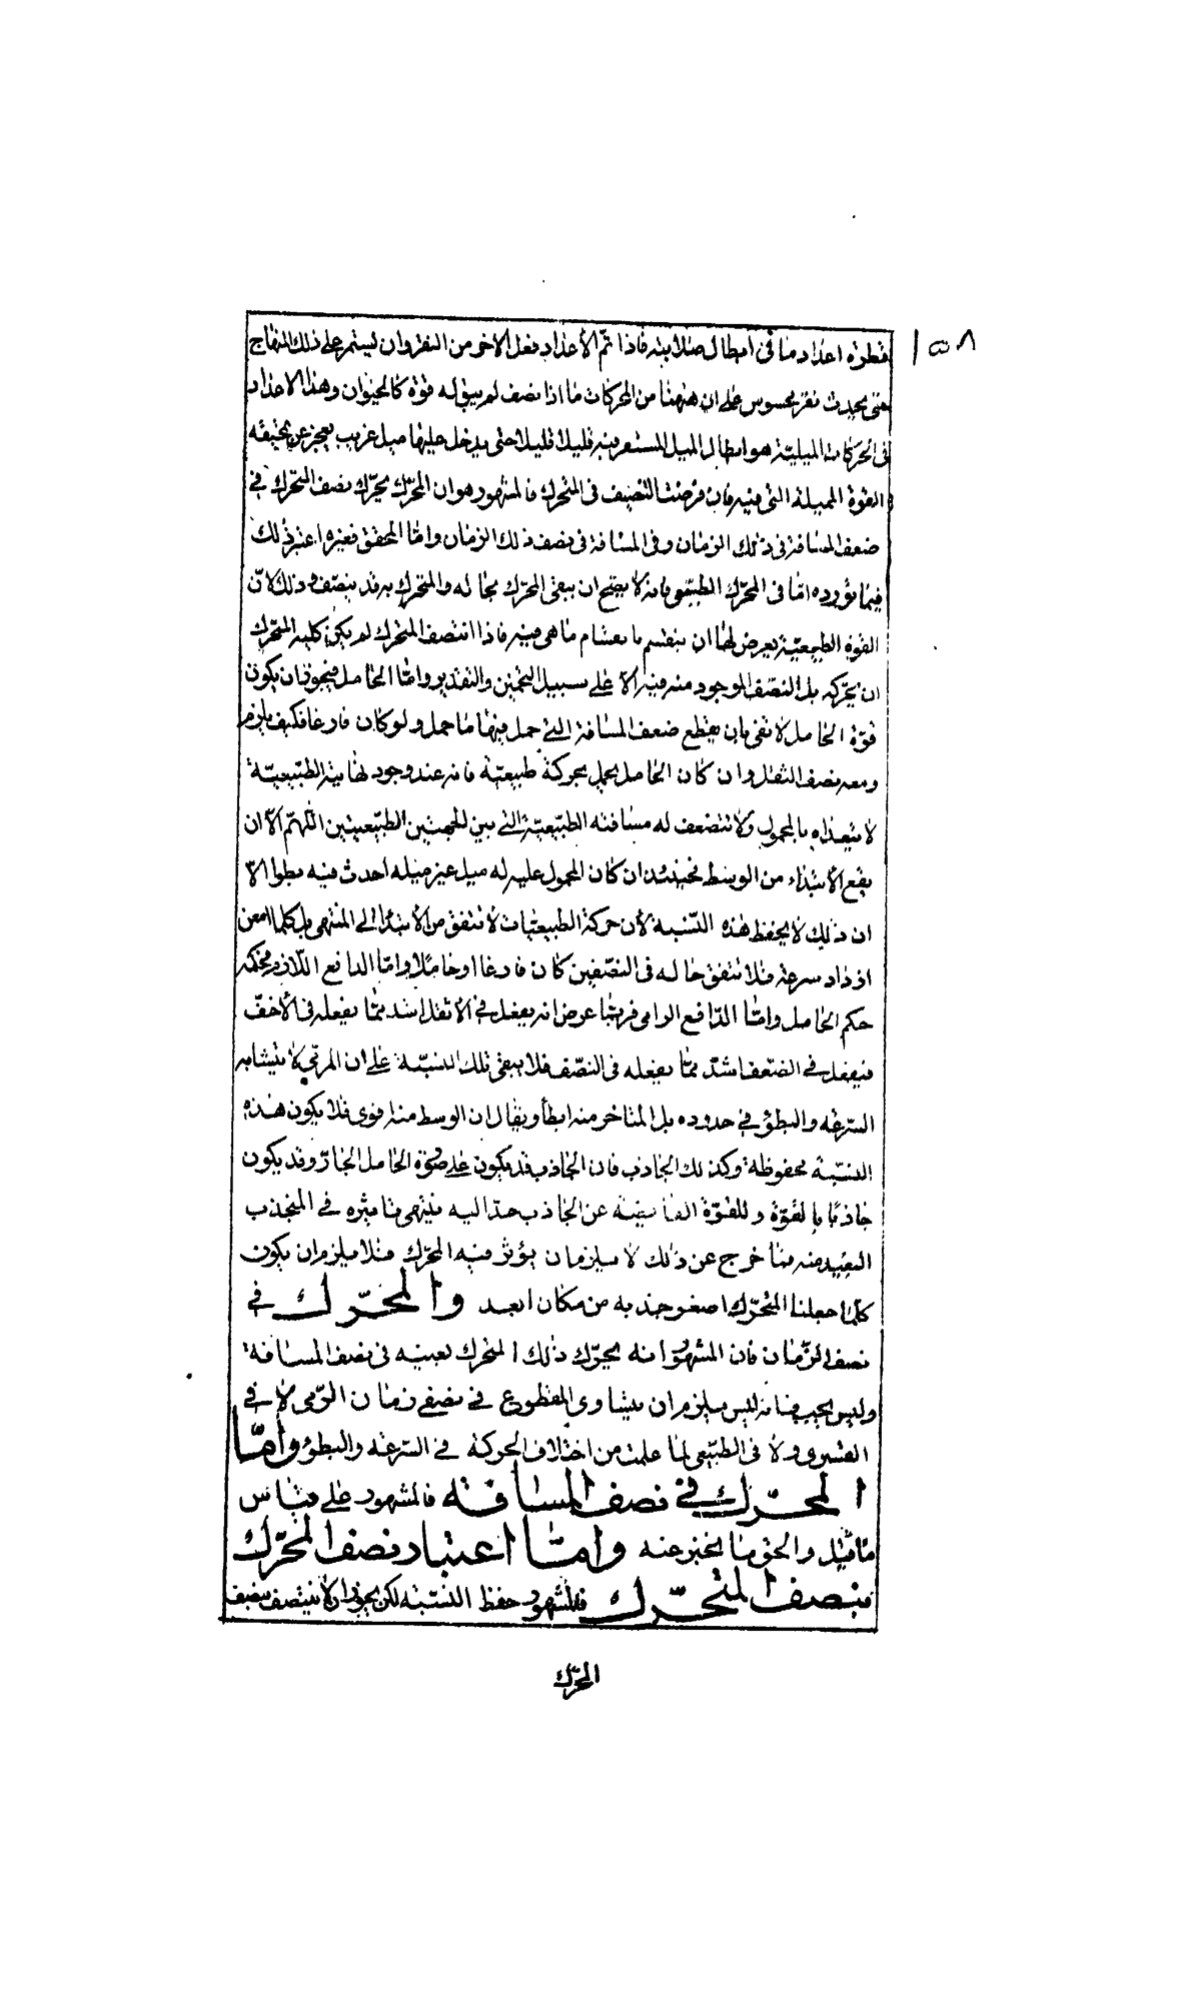 ١٥٨
قطرة اعداد ما فى ابطال صلابته فاذا تم الأعداد فعل الاخر من النقر وان ليستمر على ذلك المنهاج
حتى يحدث نقر محسوس على ان ههنا من المحركات ما اذا نصف لم يبق له قوة كالحيوان وهذا الاعداد
فى الحركات الميلية هو ابطال الميل المستعر فيه قليلا قليلا حتى يدخل عليها ميل غريب يعجز عن تحيفه
القوة المميلة التى فيه فان فرضت التنصيف فى المتحرك فالمشهور هو ان المحرّك يحرّك نصف المتحرك فى
ضعف المسافة فى ذلك الزمان وفى المسافة فى نصف ذلك الزمان وامّا المحقق فغيره اعتبر ذلك
فيما نورده امّا فى المحرّك الطبيعى فانه لا يصح ان يبقى المحرّك بحاله والمتحرك به قد ينصّف وذلك لانّ
القوة الطبيعية يعرض لها ان ينقسم بانقسام ما هى فيه فاذا انتصف المتحرك لم يكن كلية المتحرّك
ان يحرّكه بل النصف الموجود منه فيه الا على سبيل التخمين والتقدير وامّا الحامل فيجوز ان يكون
قوّة الحامل لا تفى بان يقطع ضعف المسافة التى حمل فيها ما حمل ولو كان فارغا فكيف يلزم
ومعه نصف الثقل وان كان الحامل يحمل بحركة طبيعية فانه عند وجود نهاية الطبيعيّة
لا يتعداه بالمحمول ولا تتضعف له مسافته الطبيعية التى بين الجهتين الطبيعيتين اللهمّ الّا ان
يقع الأبتداء من الوسط فحينئذ ان كان المحمول عليه له ميل غير ميله احدث فيه بطوا الا
ان ذلك لا يحفظ هذه النّسبة لأن حركة الطبيعيات لا تتفق من الأبتداء الى المنتهى بل كلما امعن
ازداد سرعة فلا تتفق حاله فى النصفين كان فارغا او حاملا وامّا الدافع اللّازم فحكمه
حكم الحامل وامّا الدّافع الرامى فربّما عرض انه يفعل فى الأثقل اشد ممّا يفعله فى الأخفّ
فيفعل فى الضعف اشدّ ممّا يفعله فى النصّف فلا يبقى تلك النسبّة على ان المرمّى لا يتشابه
السّرعة والبطؤ فى حدوده بل المتاخر منه ابطأ ويقال ان الوسط منه اقوى فلا يكون هذه
النسّبة محفوظة وكذلك الجاذب فان الجاذب قد يكون على صورة الحامل الجارّ وقد يكون
جاذبا بالقوّة وللقوّة الفايضة عن الجاذب حدّ اليه ينتهى تاثيره فى المنجذب
البعيد منه فما خرج عن ذلك لا يلزم ان يؤثر فيه المحرّك فلا يلزم ان يكون
كلّما جعلنا المتحرّك اصغر جذبه من مكان ابعد والمحرّك فى
نصف الزّمان فان المشهور انه يحرّك ذلك المتحرك بعينه فى نصف المسافة
وليس يجب فانه ليس يلزم ان يتساوى المقطوع فى نصفى زمان الرّمى لا فى
القسرى ولا فى الطبيعى لما علمت من اختلاف الحركة فى السّرعة والبطؤ وامّا
المحرّك فى نصف المسافة فالمشهور على قياس
ما قيل والحق ما يخبر عنه وامّا اعتبار نصف المحرّك
بنصف المتحرّك فالمشهور حفظ النسّبة لكن يجوز ان لا ينتصف بنصف
المحرّك